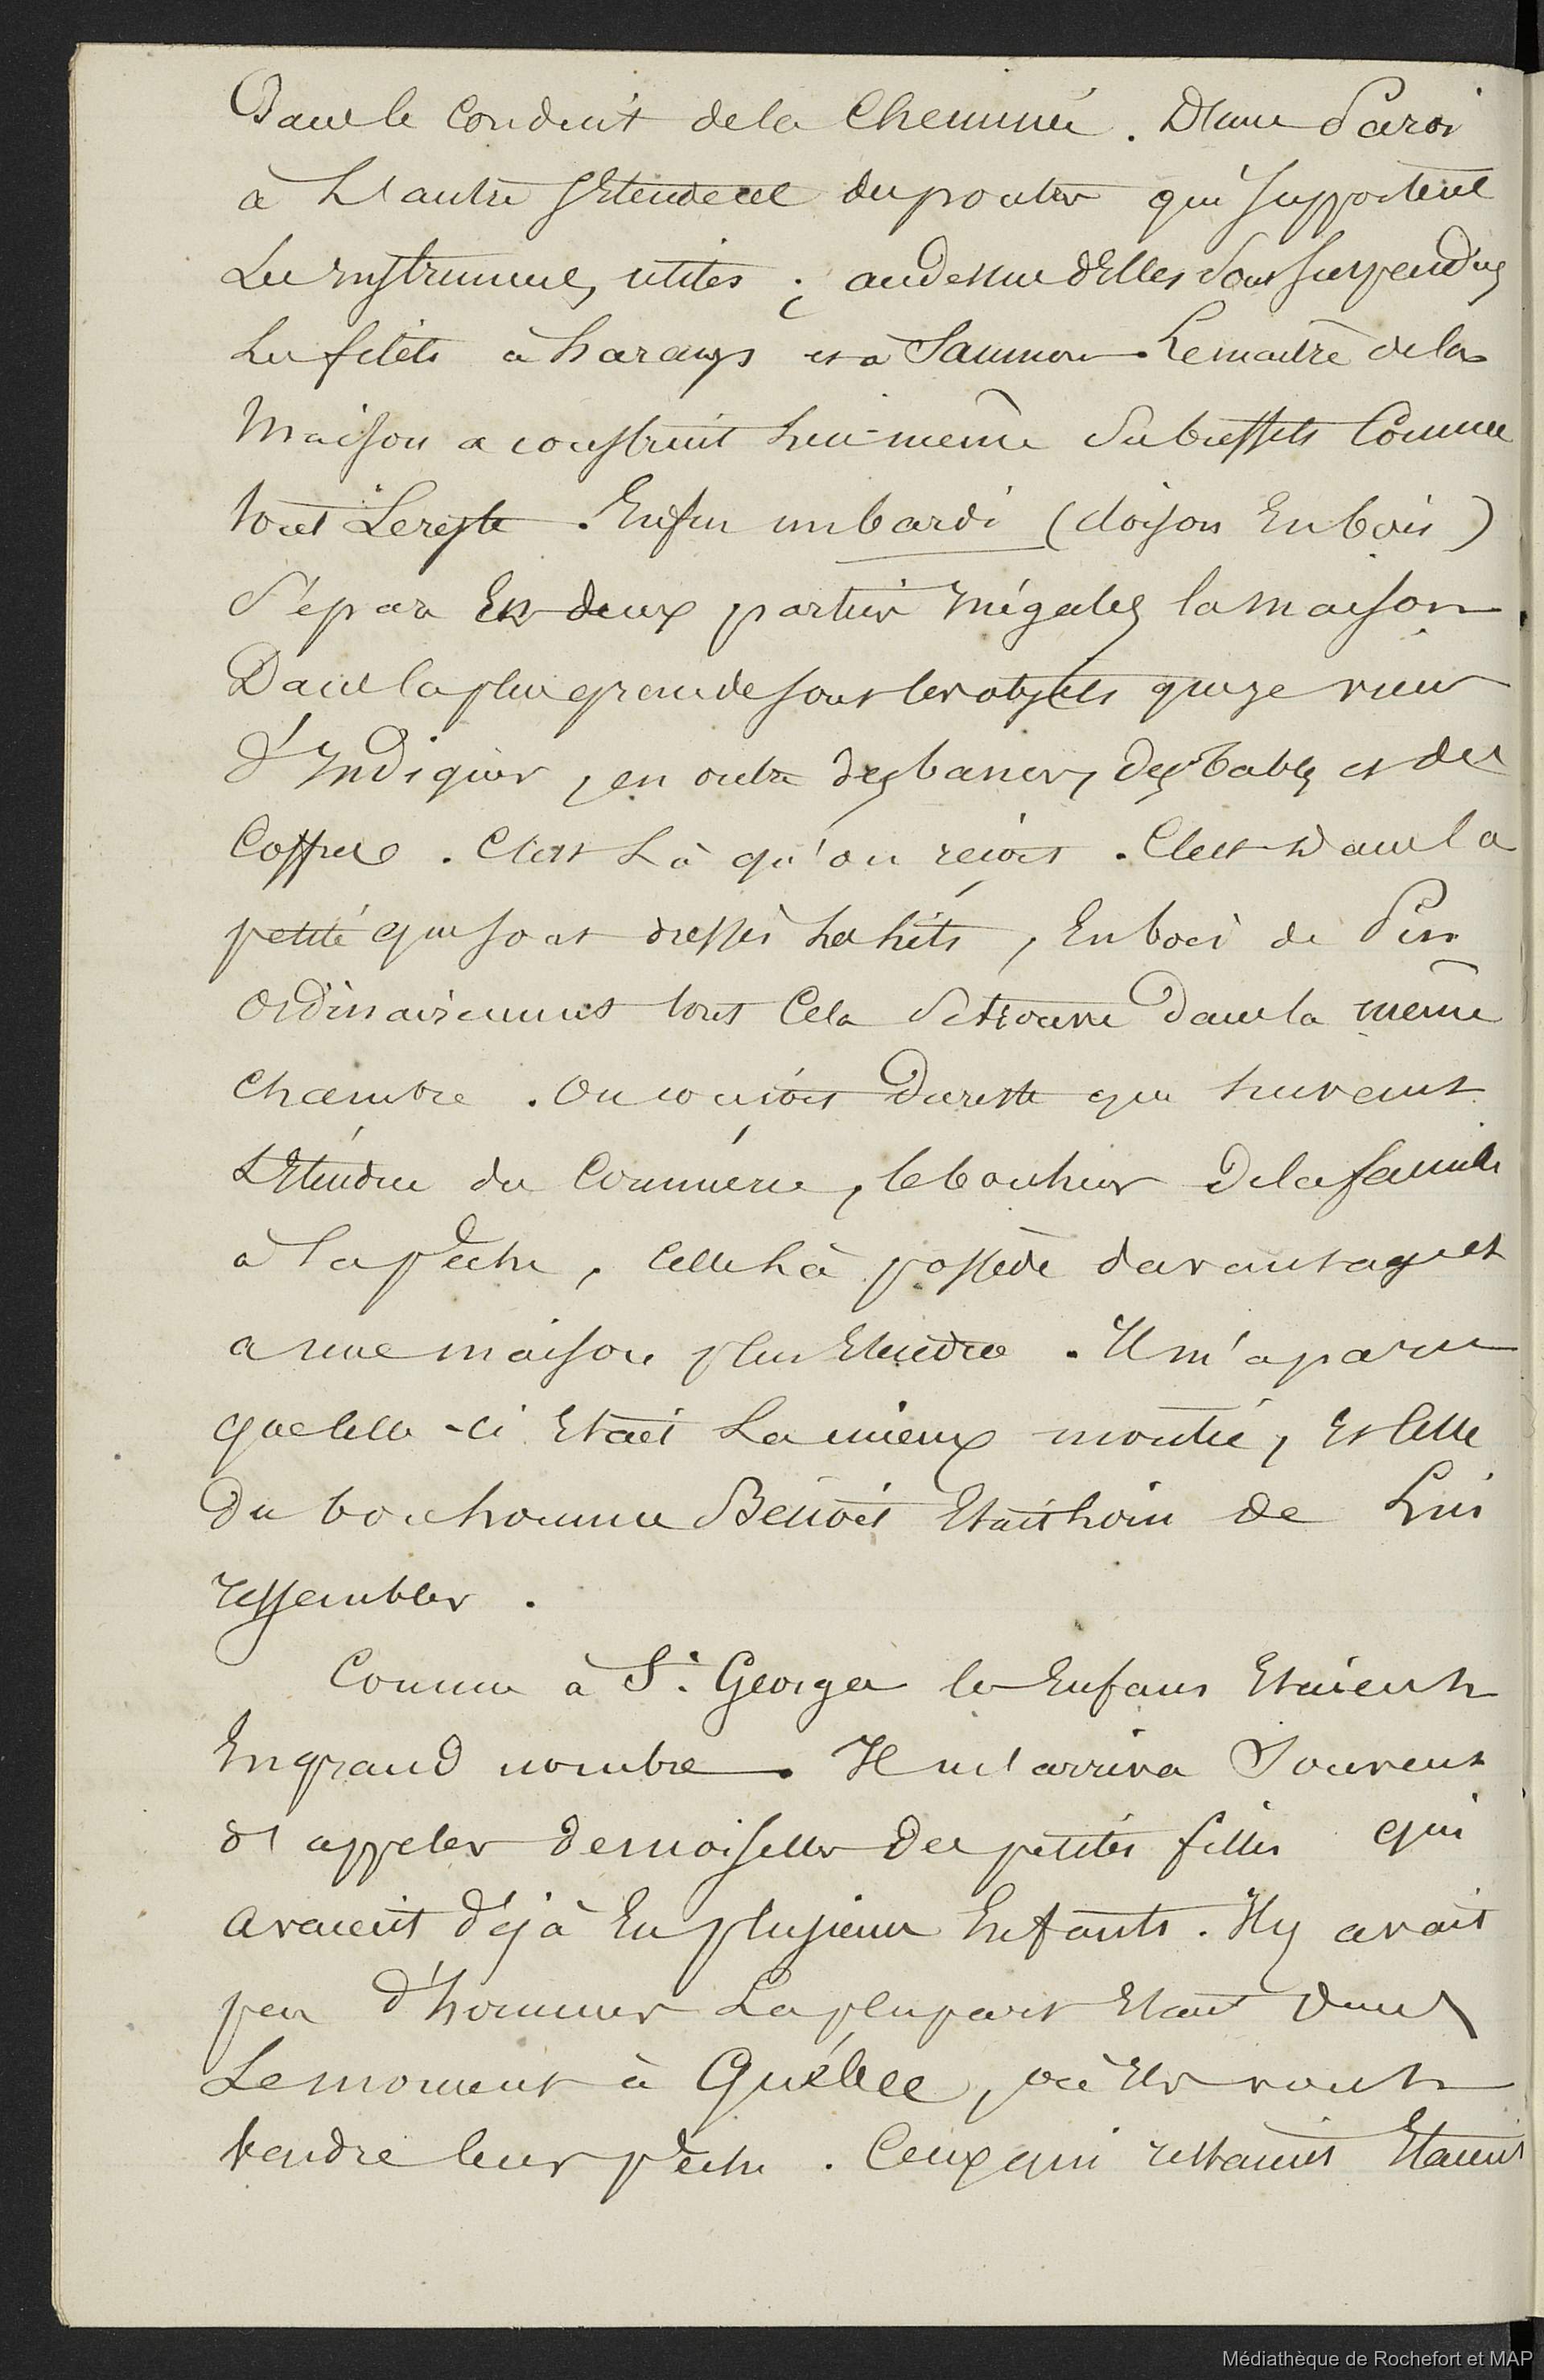 Dans le conduit de la Cheminée. D'une Paroi
à L'autre S'Etendent des poutres qui Supportent
Les instruments utiles ; au dessus d'Elles Sont Suspendus
Les filets à harangs et à Saumon. Le maitre de la
Maison a construit Lui-même Ses buffets Comme
tout Le reste. Enfin un bardi (cloison En bois)
Sépare En deux parties inégales la maison.
Dans la plus grande sont les objets que je viens
d'Indiquer, en outre des bancs, des tables et des
Coffres. C'est Là qu'on reçoit. C'est Dans la
petite que sont dressés Les lits, En bois de Pin
ordinairement tout Cela Se trouve Dans la même
chambre. On conçoit Du reste que Suivant
L'Etendue du Commerce, le bonheur De la famille
à la pêche, Celle Là possède davantage et
a une maison plus Etendue. Il m'a paru
que Celle-ci Etait La mieux montée, Et Celle
Du bonhomme Benoit Etait loin de Lui
ressembler.
Comme à St. George les Enfans Etaient
En grand nombre. Il m'arriva Souvent
d'appeler demoiselles Des petites filles qui
avaient déjà Eu plusieurs Enfants. Il y avait
peu d'hommes La plupart Etant Dans
Le moment à Québec, où Ils vont
vendre leur pêche. Ceux qui restaient Etaient
Médiathèque de Rochefort et MAP